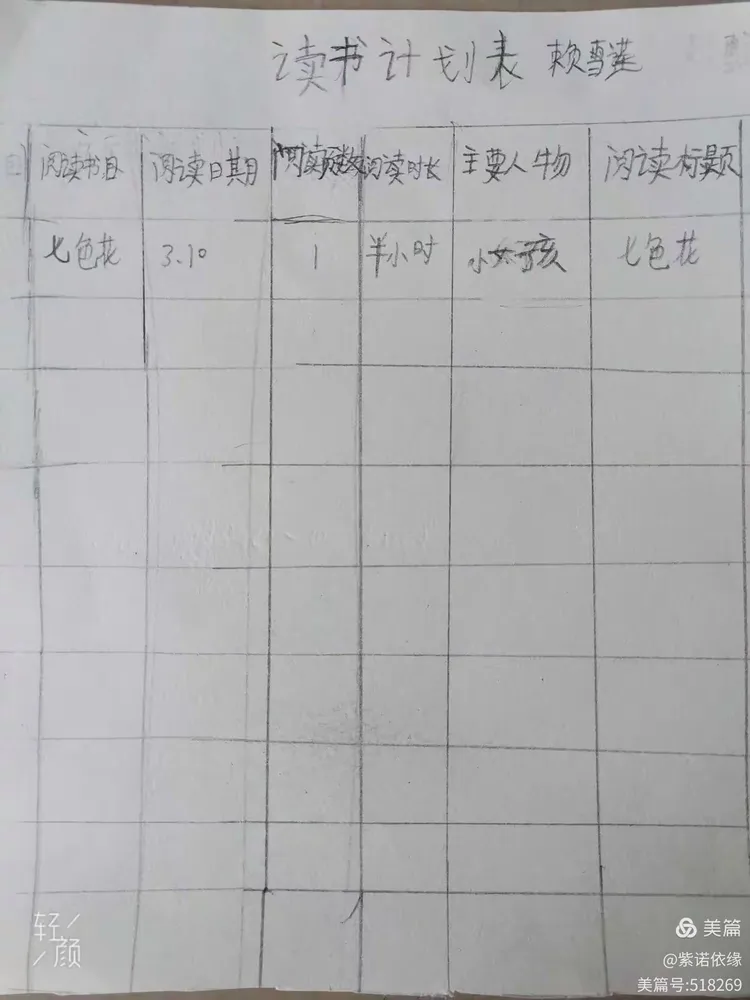 读书计划表 赖雪莲
阅读书目 阅读日期 阅读页数 阅读时长 主要人物 阅读标题
七色花 3.10 1 半小时 小女孩 七色花
轻颜
美篇
@紫诺依缘
美篇号:518269